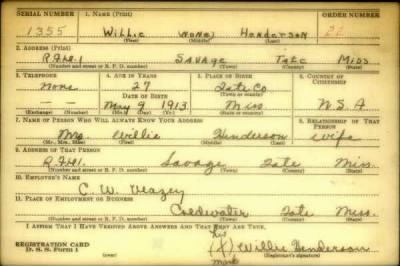 SERIAL NUMBER 1. NAME (Print) ORDER NUMBER
1355 Willie none Henderson
(First) (Middle) (Last)
2. ADDRESS (Print)
R.F.D.1 Savage Tate Miss
(Number and street or R. F. D. number) (Town) (County) (State)
3. TELEPHONE 4. AGE IN YEARS 5. PLACE OF BIRTH 6. COUNTRY OF CITIZENSHIP
None 27 Tate Co.
DATE OF BIRTH (Town or county)
— — May 9 1913 Miss U.S.A
(Exchange) (Number) (Mo.) (Day) (Yr.) (State or country)
7. NAME OF PERSON WHO WILL ALWAYS KNOW YOUR ADDRESS 8. RELATIONSHIP OF THAT PERSON
Mrs. Willie Henderson wife
(Mr., Mrs., Miss) (First) (Middle) (Last)
9. ADDRESS OF THAT PERSON
R.F.D.1. Savage Tate Miss.
(Number and street or R. F. D. number) (Town) (County) (State)
10. EMPLOYER'S NAME
C. W. Veazey
11. PLACE OF EMPLOYMENT OR BUSINESS
Coldwater Tate Miss.
(Number and street or R. F. D. number) (Town) (County) (State)
I AFFIRM THAT I HAVE VERIFIED ABOVE ANSWERS AND THAT THEY ARE TRUE.
his
REGISTRATION CARD
D. S. S. Form 1 (X) Willie Henderson
(over) mark (Registrant's signature)